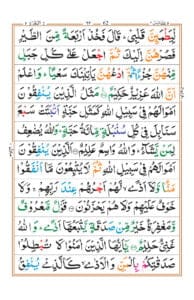 لِّيَطْمَئِنَّ قَلْبِىْ ؕ قَالَ فَخُذْ اَرْبَعَةً مِّنَ الطَّيْرِ
فَصُرْهُنَّ اِلَيْكَ ثُمَّ اجْعَلْ عَلٰى كُلِّ جَبَلٍ
مِّنْهُنَّ جُزْءًا ثُمَّ ادْعُهُنَّ يَاْتِيْنَكَ سَعْيًا ؕ وَاعْلَمْ
اَنَّ اللّٰهَ عَزِيْزٌ حَكِيْمٌ مَثَلُ الَّذِيْنَ يُنْفِقُوْنَ
اَمْوَالَهُمْ فِىْ سَبِيْلِ اللّٰهِ كَمَثَلِ حَبَّةٍ اَنْۢبَتَتْ سَبْعَ
سَنَابِلَ فِىْ كُلِّ سُنْۢبُلَةٍ مِّائَةُ حَبَّةٍ ؕ وَاللّٰهُ يُضٰعِفُ
لِمَنْ يَّشَآءُ ؕ وَاللّٰهُ وَاسِعٌ عَلِيْمٌ اَلَّذِيْنَ يُنْفِقُوْنَ
اَمْوَالَهُمْ فِىْ سَبِيْلِ اللّٰهِ ثُمَّ لَا يُتْبِعُوْنَ مَآ اَنْفَقُوْا
مَنًّا وَّلَآ اَذًى لَّهُمْ اَجْرُهُمْ عِنْدَ رَبِّهِمْ ۚ وَلَا
خَوْفٌ عَلَيْهِمْ وَلَا هُمْ يَحْزَنُوْنَ قَوْلٌ مَّعْرُوْفٌ
وَّمَغْفِرَةٌ خَيْرٌ مِّنْ صَدَقَةٍ يَّتْبَعُهَآ اَذًى ؕ وَاللّٰهُ
غَنِىٌّ حَلِيْمٌ يٰٓاَيُّهَا الَّذِيْنَ اٰمَنُوْا لَا تُبْطِلُوْا
صَدَقٰتِكُمْ بِالْمَنِّ وَالْاَذٰى كَالَّذِىْ يُنْفِقُ